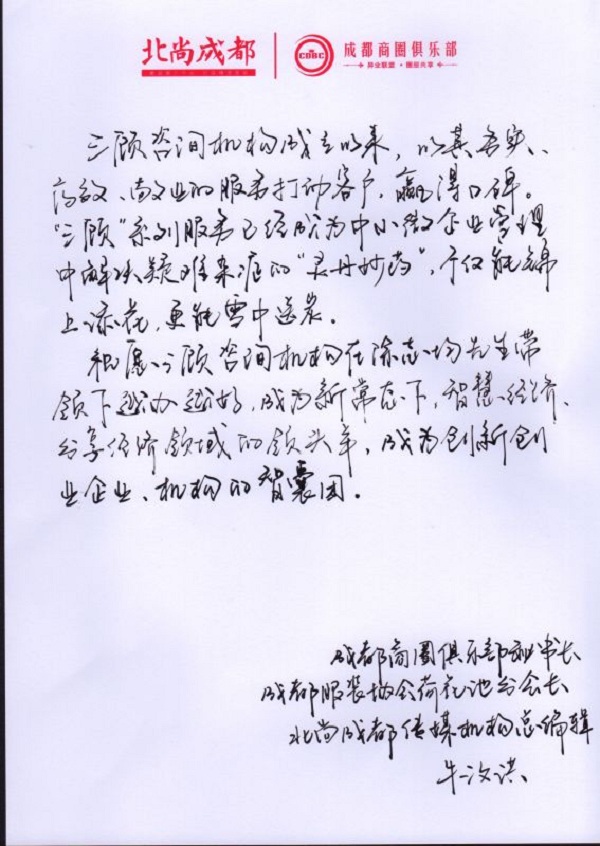 北尚成都
CDBC
成都商圈俱乐部
异业联盟·圈层共享
三顾咨询机构成立以来,以其务实、
高效、的服务打动客户,赢得口碑。
“三顾”系列服务已经成为中小微企业管理
中解决疑难杂症的“灵丹妙药”,不仅能锦
上添花,更能雪中送炭。
祝愿三顾咨询机构在先生带
领下越办越好,成为新常态下,智慧经济、
分享经济领域的领头羊,成为创新创
业企业、机构的智囊团。
成都商圈俱乐部秘书长
成都服装协会荷花池分会长
北尚成都传媒机构总编辑
牛